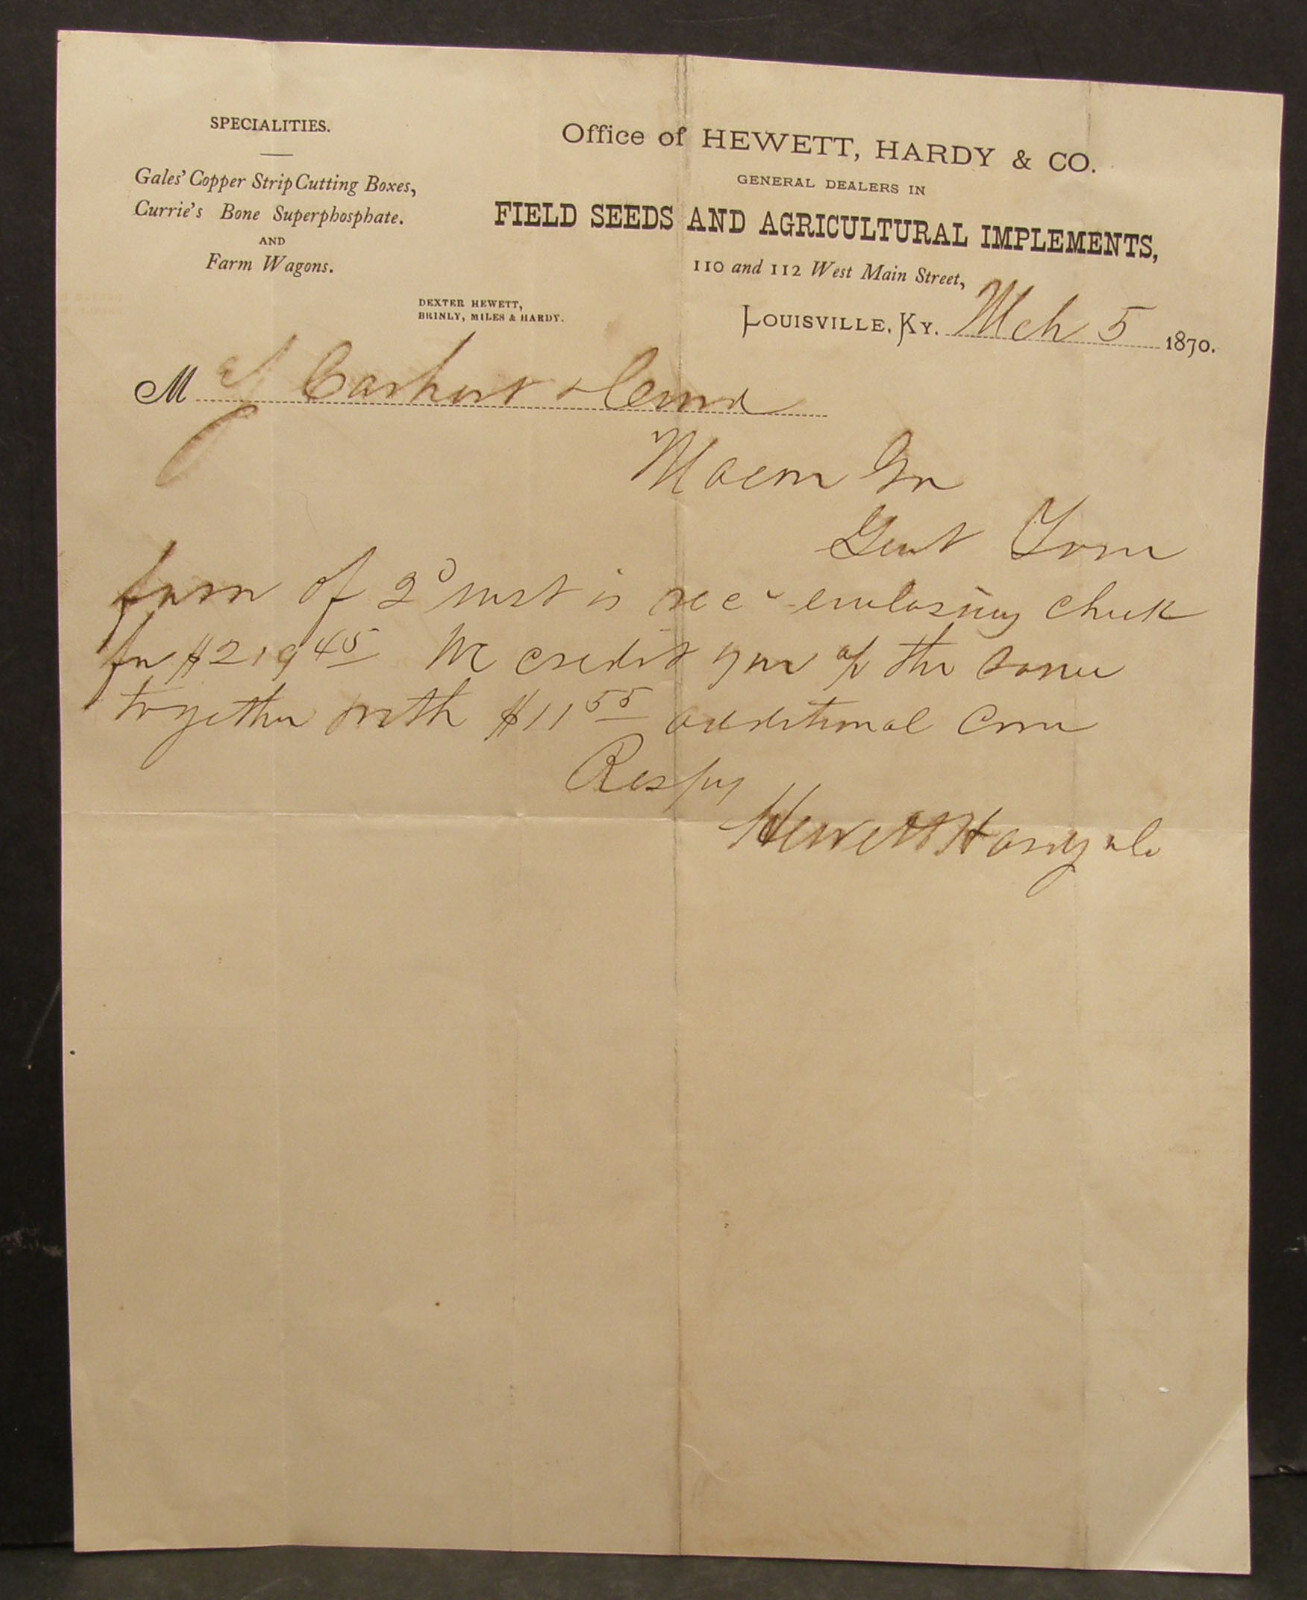 SPECIALITIES.
Gales' Copper Strip Cutting Boxes,
Currie's Bone Superphosphate.
AND
Farm Wagons.
DEXTER HEWETT,
BRINLY, MILES & HARDY.
Office of HEWETT, HARDY & CO.
GENERAL DEALERS IN
FIELD SEEDS AND AGRICULTURAL IMPLEMENTS,
110 and 112 West Main Street,
LOUISVILLE, KY. Mch 5 1870.
M Carhart & Curd
Macon Ga
Gent Your
favor of 2d inst is recd enclosing check
for $219 45 We credit your a/c the same
together with $11 55 additional Com
Respy
Hewett Hardy & Co